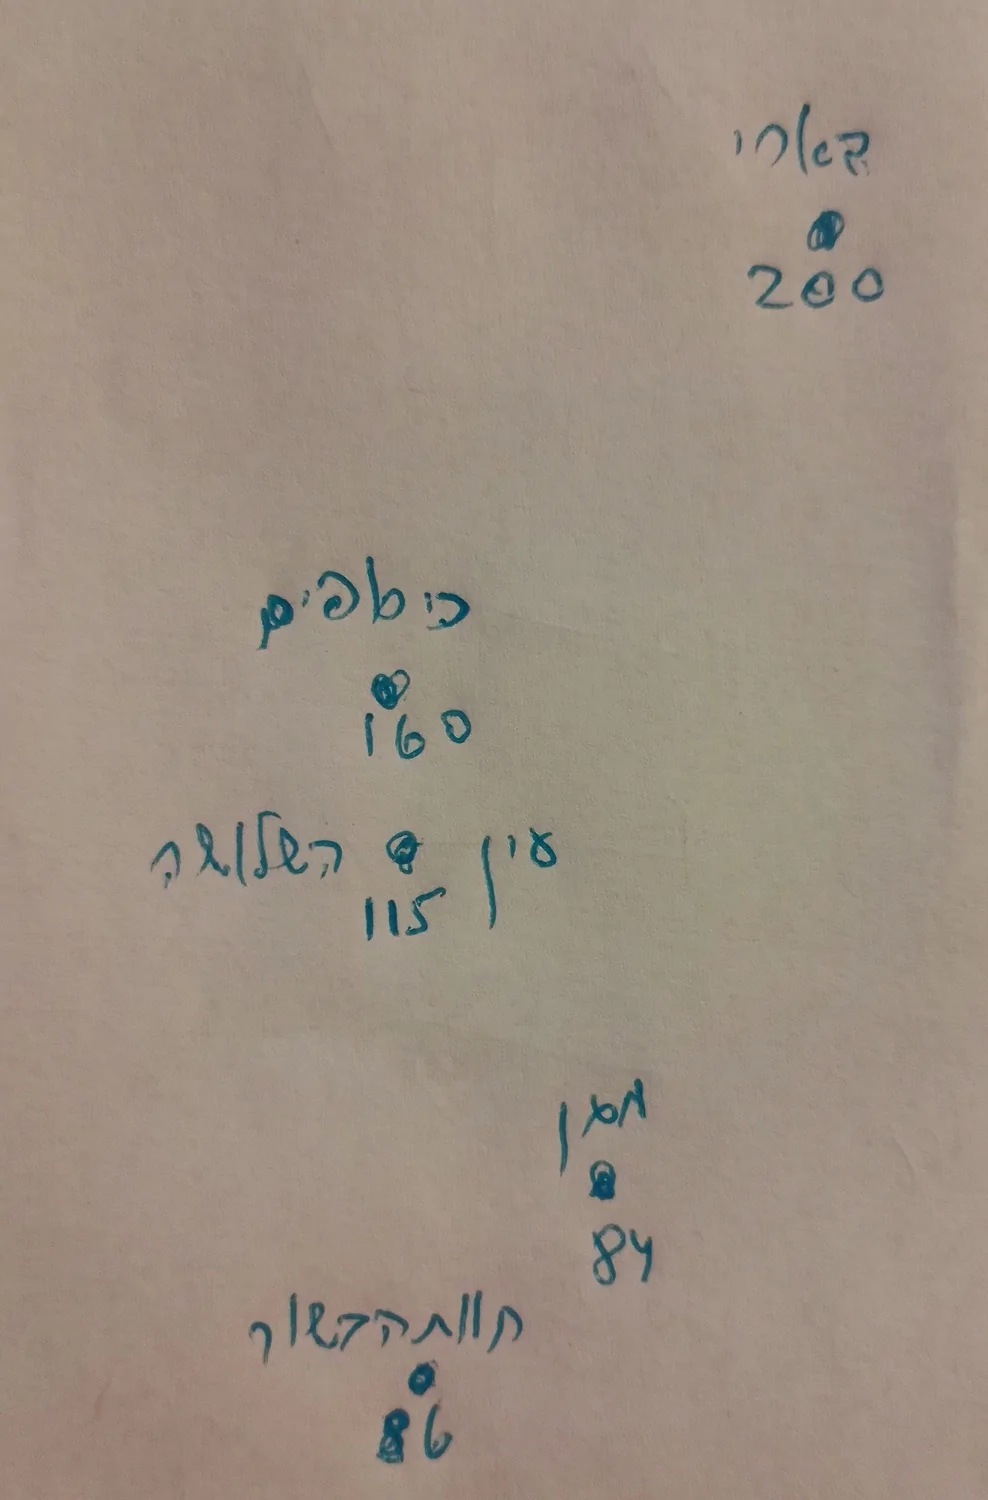 בארי
200
כיסופים
160
עין השלושה
115
מגן
84
חוות הבשור
86